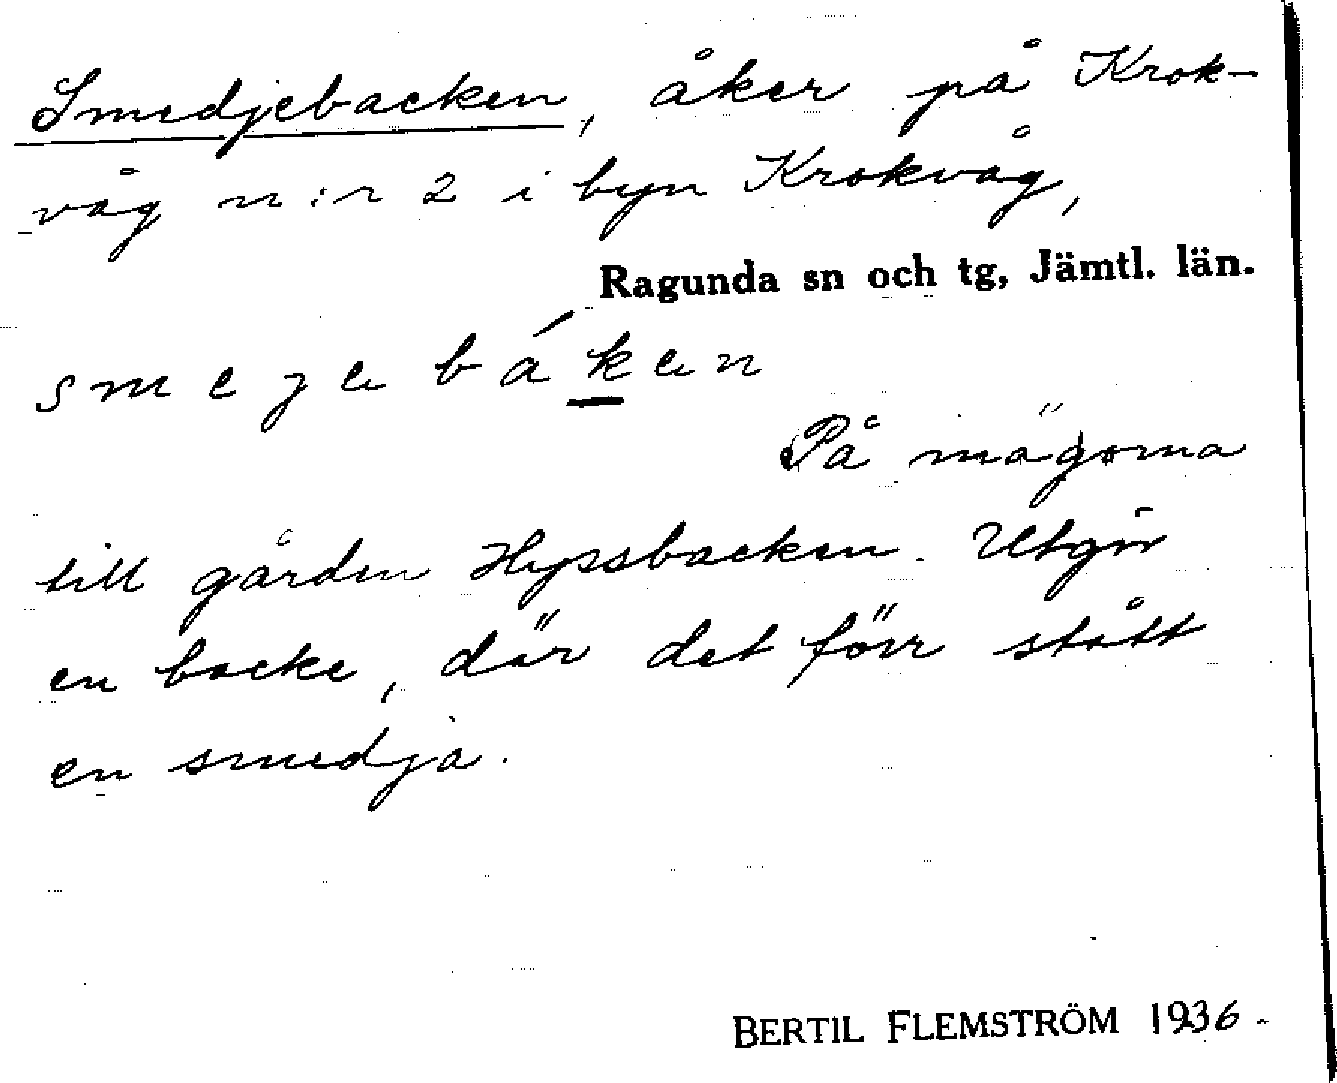 Smedjebacken, åker på Krok-
våg n:r 2 i byn Krokvåg,
Ragunda sn och tg, Jämtl. län.
smejebák̲en
På mägorna
till gården Hyssbacken. Utgör
en backe, där det förr stått
en smedja.
BERTIL FLEMSTRÖM 1936.